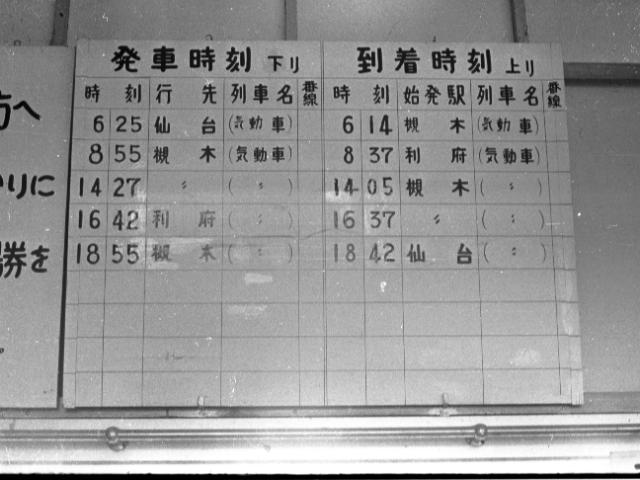 方へ
りに
勝を
発車時刻 下り
時 刻 行 先 列車名 番線
6 25 仙 台 (気動車)
8 55 槻 木 (気動車)
14 27 〃 ( 〃 )
16 42 利 府 ( 〃 )
18 55 槻 木 ( 〃 )
到着時刻 上り
時 刻 始発駅 列車名 番線
6 14 槻 木 (気動車)
8 37 利 府 (気動車)
14 05 槻 木 ( 〃 )
16 37 〃 ( 〃 )
18 42 仙 台 ( 〃 )